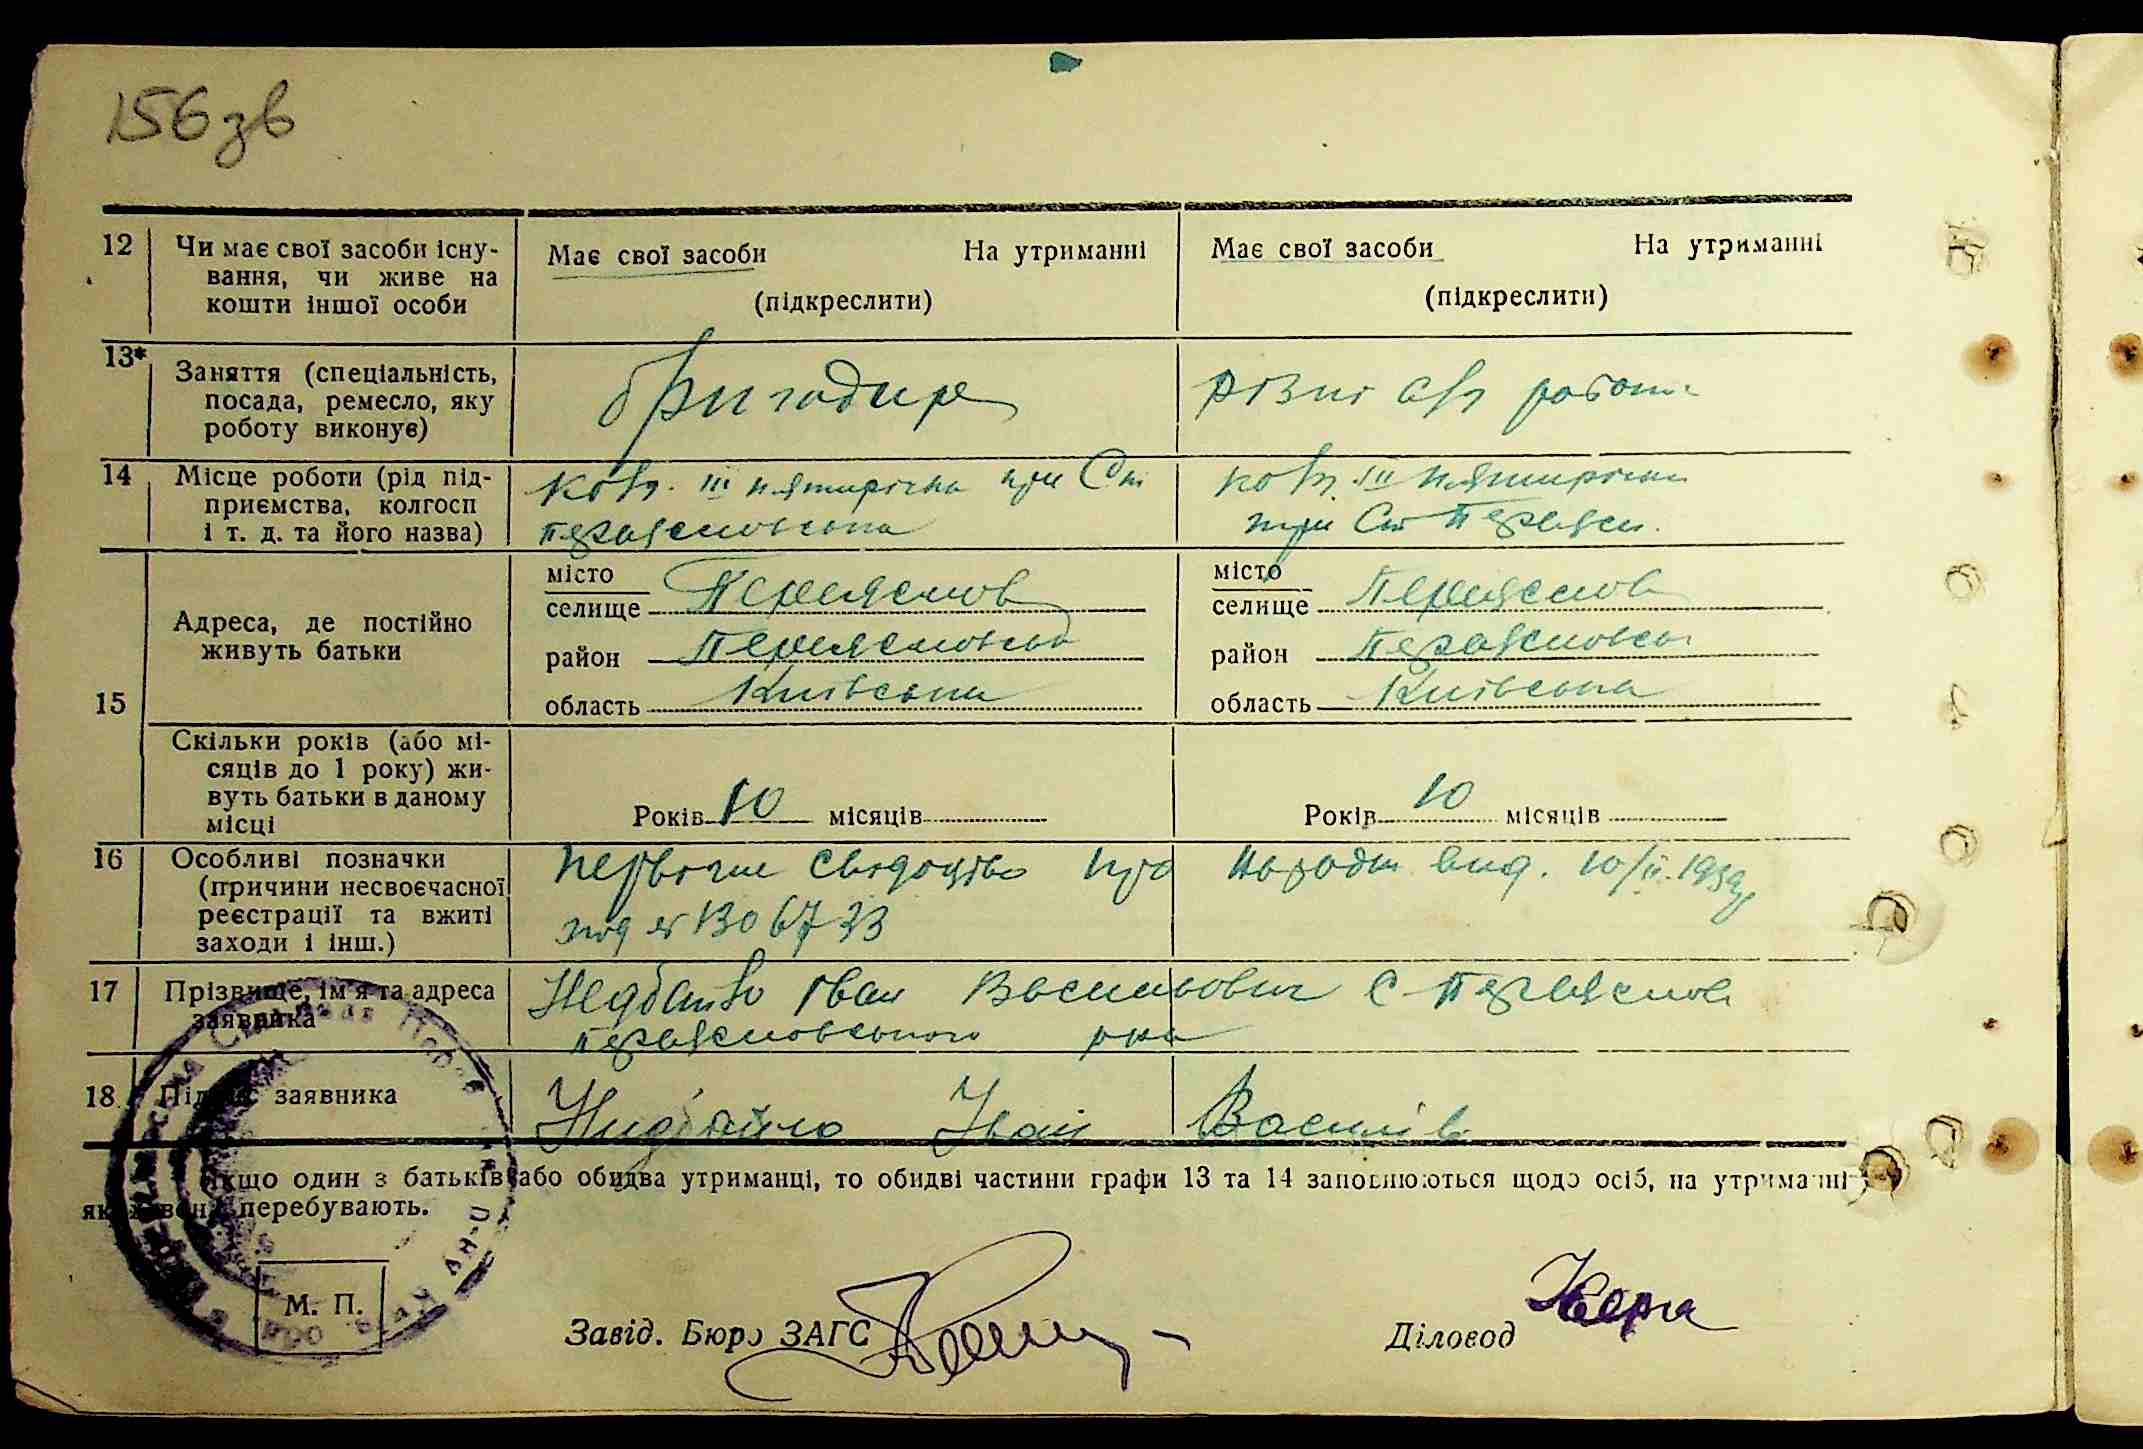 156 зв
12 Чи має свої засоби існу- Має свої засоби На утриманні Має свої засоби На утриманні
вання, чи живе на
кошти іншої особи (підкреслити) (підкреслити)
13* Заняття (спеціальність,
посада, ремесло, яку бригадир різні роботи
роботу виконує)
14 Місце роботи (рід під- III пятирічка при Ст III пятирічки
приємства, колгосп
і т. д. та його назва) при Ст
15 Адреса, де постійно
живуть батьки
місто місто
селище Переяслов селище Переяслов
район Переясловськ район Переясловськ
область Київська область Київська
Скільки років (або мі-
сяців до 1 року) жи-
вуть батьки в даному
місці Років 10 місяців Років 10 місяців
16 Особливі позначки Первісне свідоцтво про народж вид. 10/II.1939р
(причини несвоєчасної
реєстрації та вжиті під №
заходи і інш.)
17 Прізвище, ім'я та адреса Недбайло Іван Васильович с Переяслов
заявника Переясловського р-на
18 Підпис заявника Нидбайло Іван Василів
Якщо один з батьків або обидва утриманці, то обидві частини графи 13 та 14 заповнюються щодо осіб, на утриманні
яких вони перебувають.
М. П.
Завід. Бюро ЗАГС Діловод